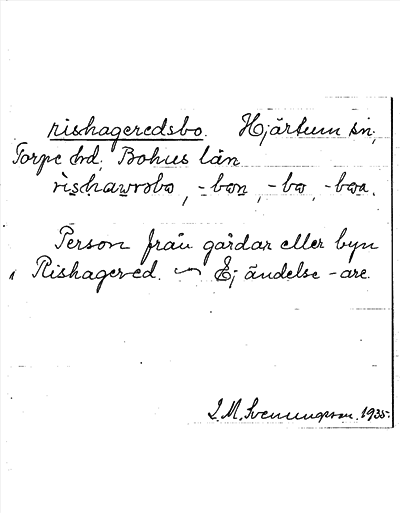 rishageredsbo. Hjärtum sn,
Torpe hd, Bohus län
rishawrsbo, -bon, -bo, -boa.
Person från gårdar eller byn
Rishagered. ~ Ej ändelse -are.
J. M. Svenungsson. 1935.